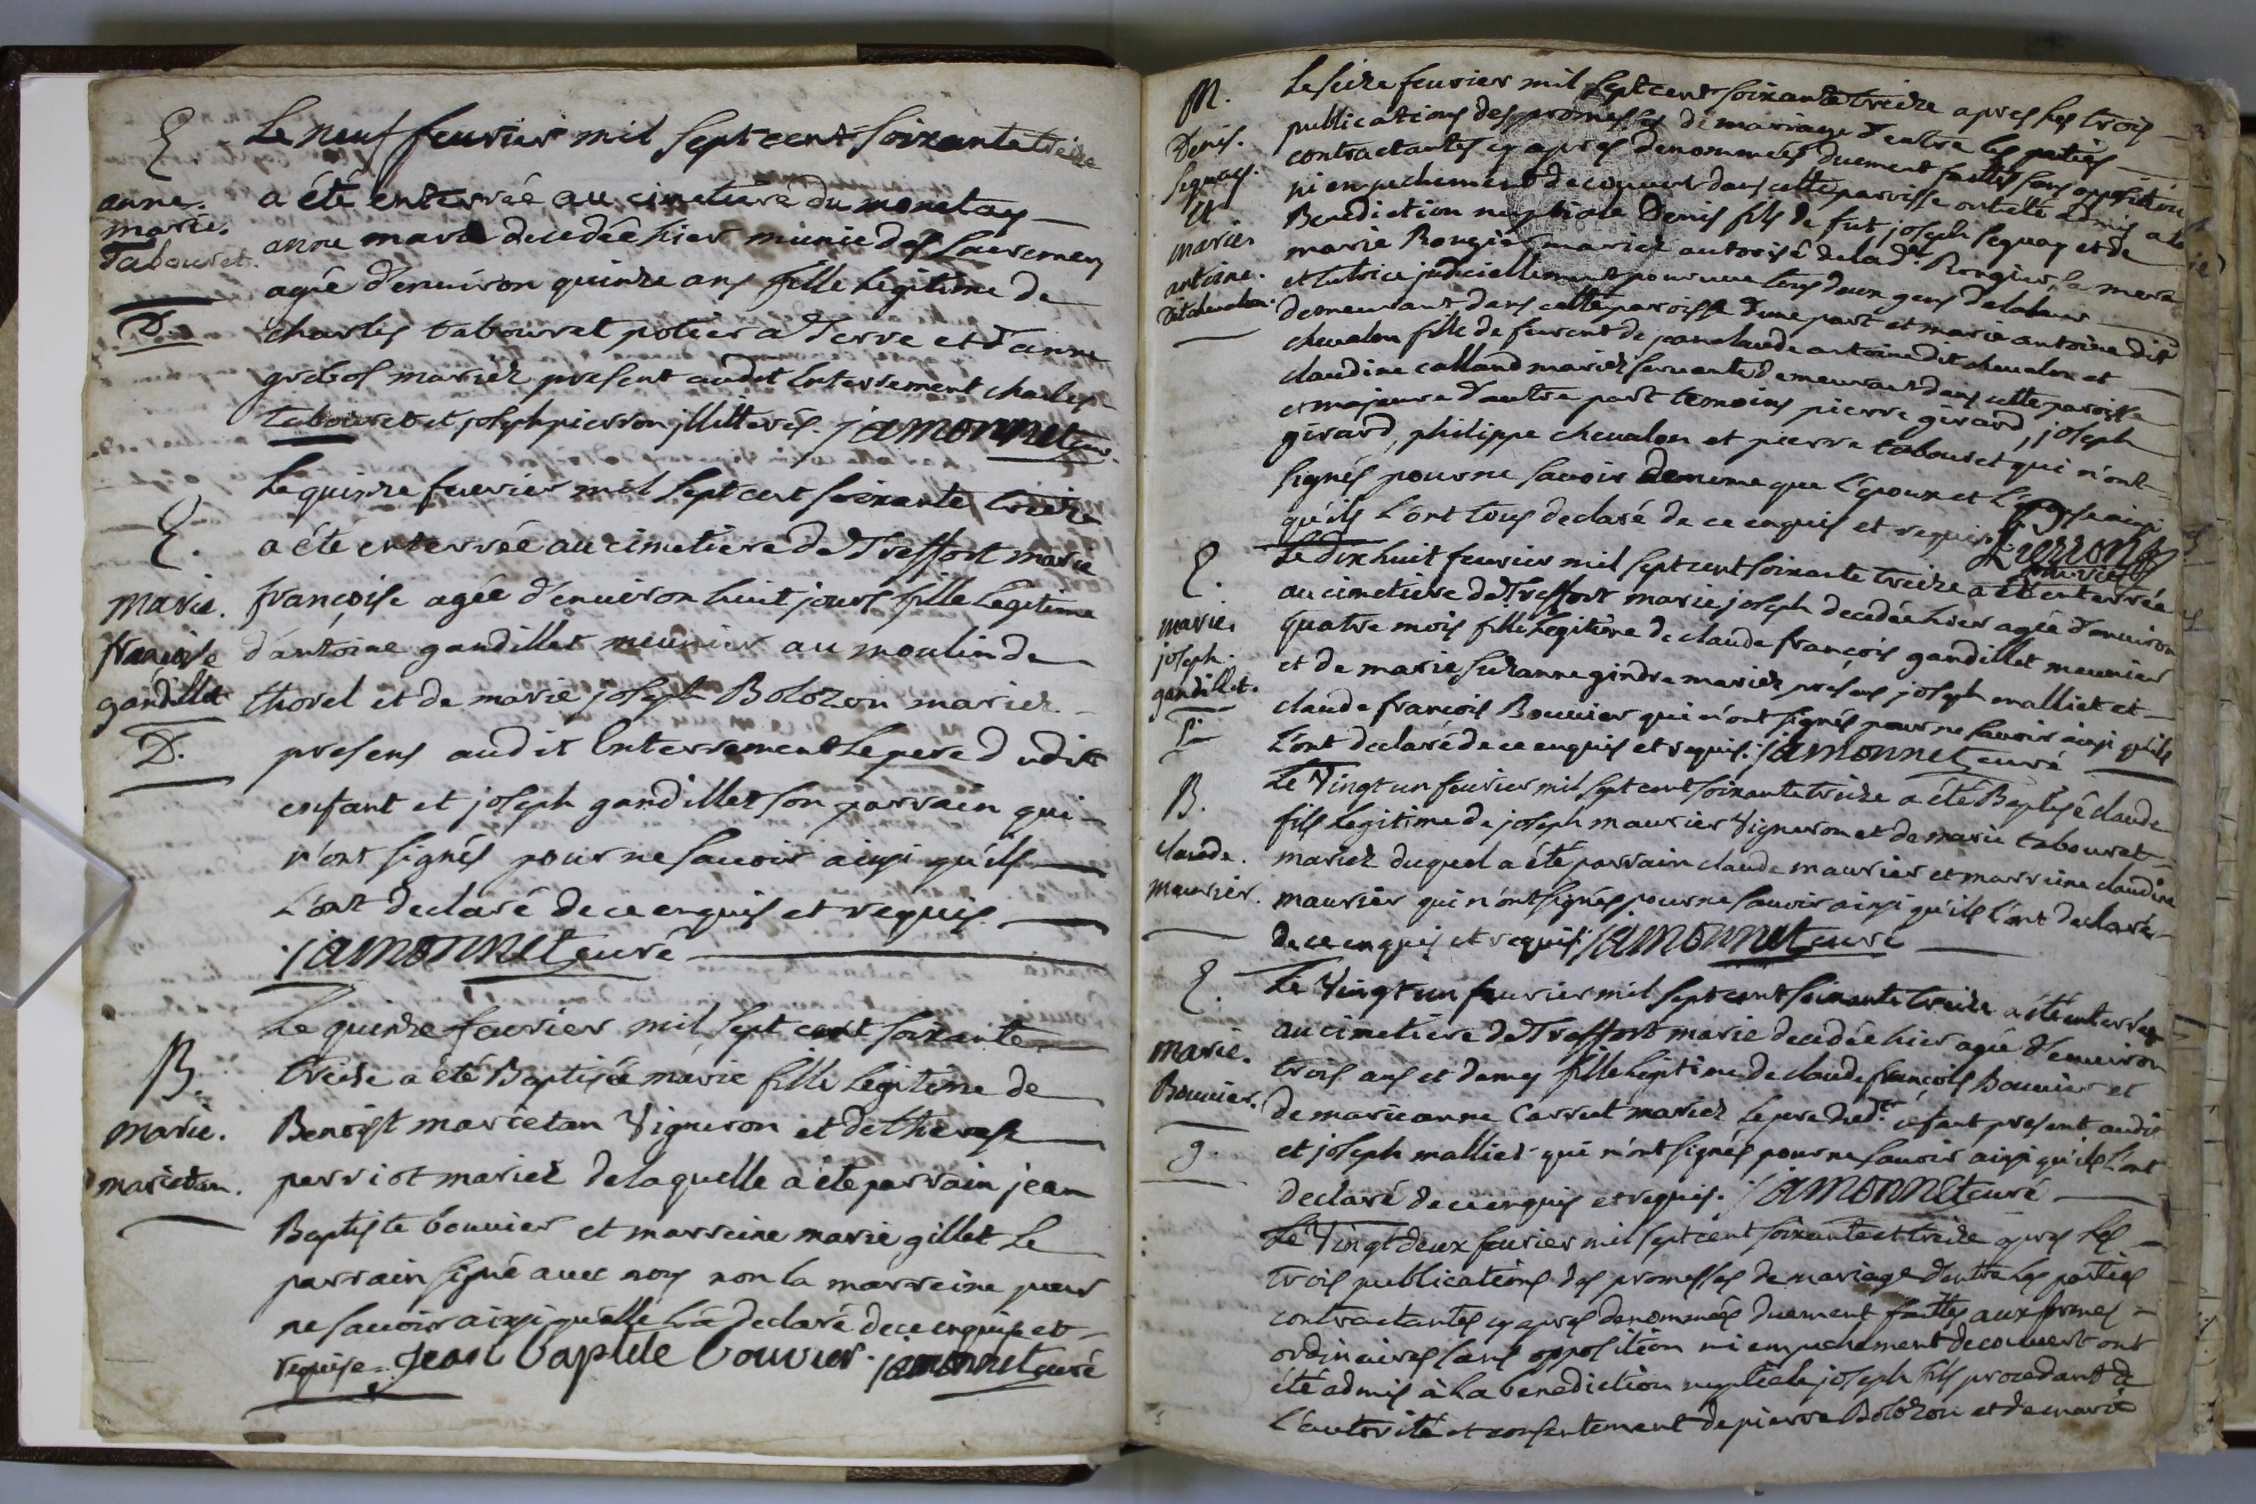 E
anne.
marie.
Tabouret.
D.
Le neuf feurier mil sept cent soixante treize
a été enterrée au cimetiere du monetay
anne marie decedée hier munie des sacremens
agée d'enuiron quinze ans fille legitime de
charles tabouret potier a terre et d'anne
mariez present audit enterrement charles
tabouret et joseph pierron illitterés. jamonnet curé.
E.
marie.
françoise
gandillet
D.
Le quinze feurier mil sept cent soixante treize
a éte enterrée au cimetiere de Treffort marie
françoise agée d'enuiron huit jours fille legitime
d'antoine gandillet meunier au moulin de
thorel et de marie joseph Bolozon mariez
presens audit enterrement le pere dudit
enfant et joseph gandillet son parrain qui
n'ont signés pour ne sauoir ainsi qu'ils
l'ont declaré de ce enquis et requis.
jamonnet curé
B.
marie.
marietan.
Le quinze feurier mil sept cent soixante
treize a été Baptisée marie fille legitime de
Benoist marietan Vigneron et de therese
perriot mariez de laquelle a été parrain jean
Baptiste bouuier et marreine marie gillet le
parrain signé auec nous non la marreine pour
ne sauoir ainsi qu'elle l'a declaré de ce enquise et
requise. Jean baptiste bouvier. jamonnet curé
M.
Denis.
Sequay.
et
marie.
antoine.
dit cheualon.
Le seize feurier mil sept cent soixante treize apres les trois
publications des promesses de mariage d'entre les parties
contractantes cy apres denommées duement faites sans opposition
ni empechement decouuert dans cette paroisse ont été admis a la
Benediction nuptiale Denis fils de fut joseph Sequay et de
marie Rougier mariez autorisé de lad.te Rougier, sa mere
et tutrice judiciellement pourvue tous deux gens de labeur
demeurant dans cette paroisse d'une part et marie antoine dit
cheualon fille de feurent de jean claude antoine dit cheualon et
claudine calland mariez seruante demeurant dans cette paroisse
et majeure d'autre part temoins pierre girard, joseph
girard, philippe cheualon et pierre tabouret qui n'ont
signés pour ne sauoir de meme que l'epoux et l'epouse ainsi
qu'ils l'ont tous declaré de ce enquis et requis. Pierron
vicaire
E.
marie.
joseph.
gandillet.
Le dix huit feurier mil sept cent soixante treize a été enterrée
au cimetiere de Treffort marie joseph decedée hier agée d'enuiron
quatre mois fille legitime de claude françois gandillet meunier
et de marie suzanne gindre mariez presens joseph malliet et
claude françois Bouuier qui n'ont signés pour ne sauoir ainsi qu'ils
l'ont declaré de ce enquis et requis. jamonnet curé
B.
claude.
maurier.
Le Vingt un feurier mil sept cent soixante treize a été Baptisé claude
fils legitime de joseph maurier Vigneron et de marie tabouret
mariez duquel a été parrain claude maurier et marreine claudine
maurier qui n'ont signés pour ne sauoir ainsi qu'ils l'ont declaré
de ce enquis et requis. jamonnet curé
E.
marie.
Bouuier.
g.
Le Vingt un feurier mil sept cent soixante treize a été enterrée
au cimetiere de Treffort marie decedée hier agée d'enuiron
trois ans et demy fille legitime de claude françois Bouuier et
de marie anne Carrut mariez le pere dud.t enfant present audit
et joseph malliet qui n'ont signés pour ne sauoir ainsi qu'ils l'ont
declaré de ce enquis et requis. jamonnet curé
Le Vingt deux feurier mil sept cent soixante et treize apres les
trois publications des promesses de mariage d'entre les parties
contractantes cy apres denommées duement faittes aux formes
ordinaires sans opposition ni empechement decouuert ont
été admis à la benediction nuptiale joseph fils procedant de
l'autorité et consentement de pierre Bolozon et de marie